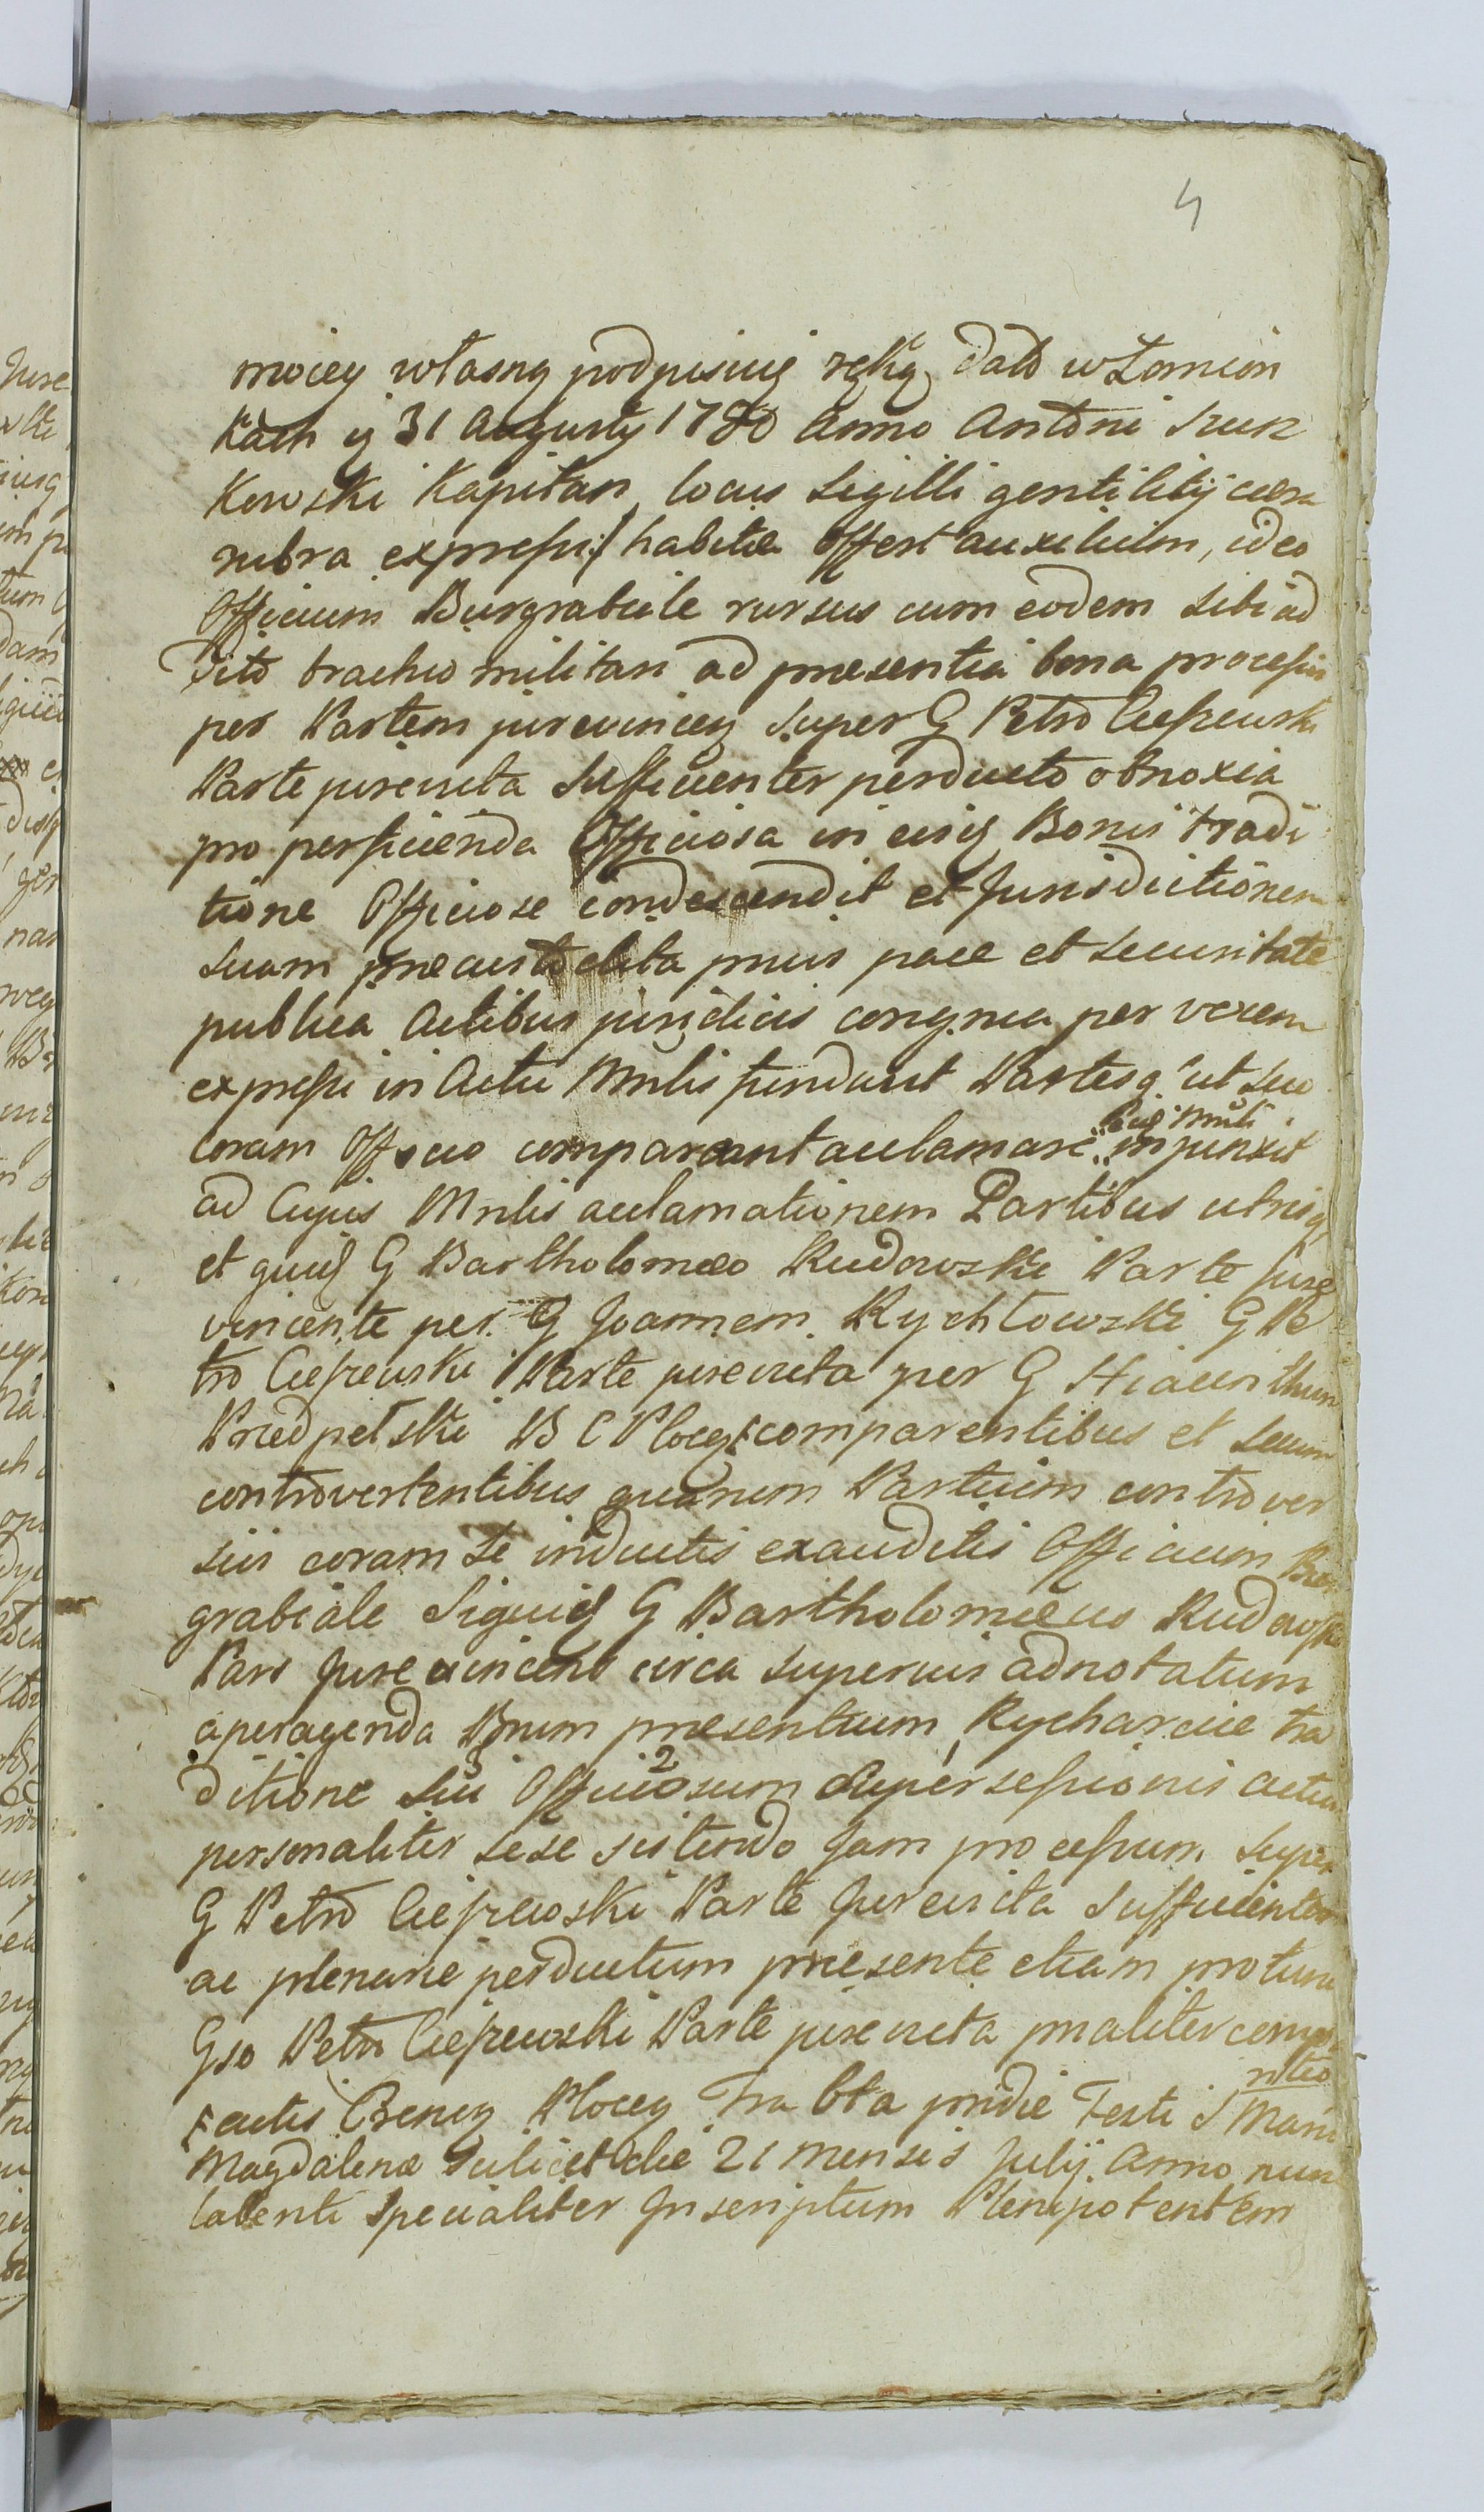 4
moiey własną podpisuię ręką, Dato w Łomion
kach y 31 Augusty 1780 Anno Antoni Szuz
Kowski Kapitan, locus Sigilli gentilitij cera
rubra expressi:/ habitæ offert auxilium, ideo
Officium Burgrabiale rursus cum eodem sibi ad
dito brachio militari ad præsentia bona processui
per Partem jurevincen super G Petro Ciepewski
Parte jurevicta Sufficienter perducto obnoxia
pro perficienda Officiosa in eisq Bonis tradi
tione Officiose condescendit et Jurisdictionem
suam præcustodita prius pace et securitate
publica Actibus juridicis congrua per verem
expressi in Actu Mnlis fundavit Partesq' ut seu
coram Officio compareant acclamare injunxit
ad Cujus Mnlis acclamationem Partibus utrisq
et quid G Bartholomæo Rudowski Parte Jure
vincente per G Joannem Rychłowski G Pe
tro Ciepewski Parte jurevicta per G Hiacinthum
Przedpełski B C Plocen comparentibus et secum
controvertentibus quarum Partium controver
siis coram se inductis exauditis Officium Bur
grabiale Siquid G Bartholomæus Rudowski
Pars Jurevincens circa superius adnotatum
aperagenda Bnum præsentium Rycharcice tra
ditione sui Officiosum Supersessionis actum
personaliter sese sistendo Jam processum super
G Petro Ciepewski Parte Jurevicta Sufficienter
ac plenarie perductum præsente etiam pro tunc
Gso Petro Ciepewski Parte jurevicta pnaliter compa
rnteo
actis Crensz Plocen Fra 6ta pridie Festi S Mari
Magdalenæ Scilicet die 21 mensis Julij Anno nunc
labenti Specialiter Inscriptum Plenipotentem